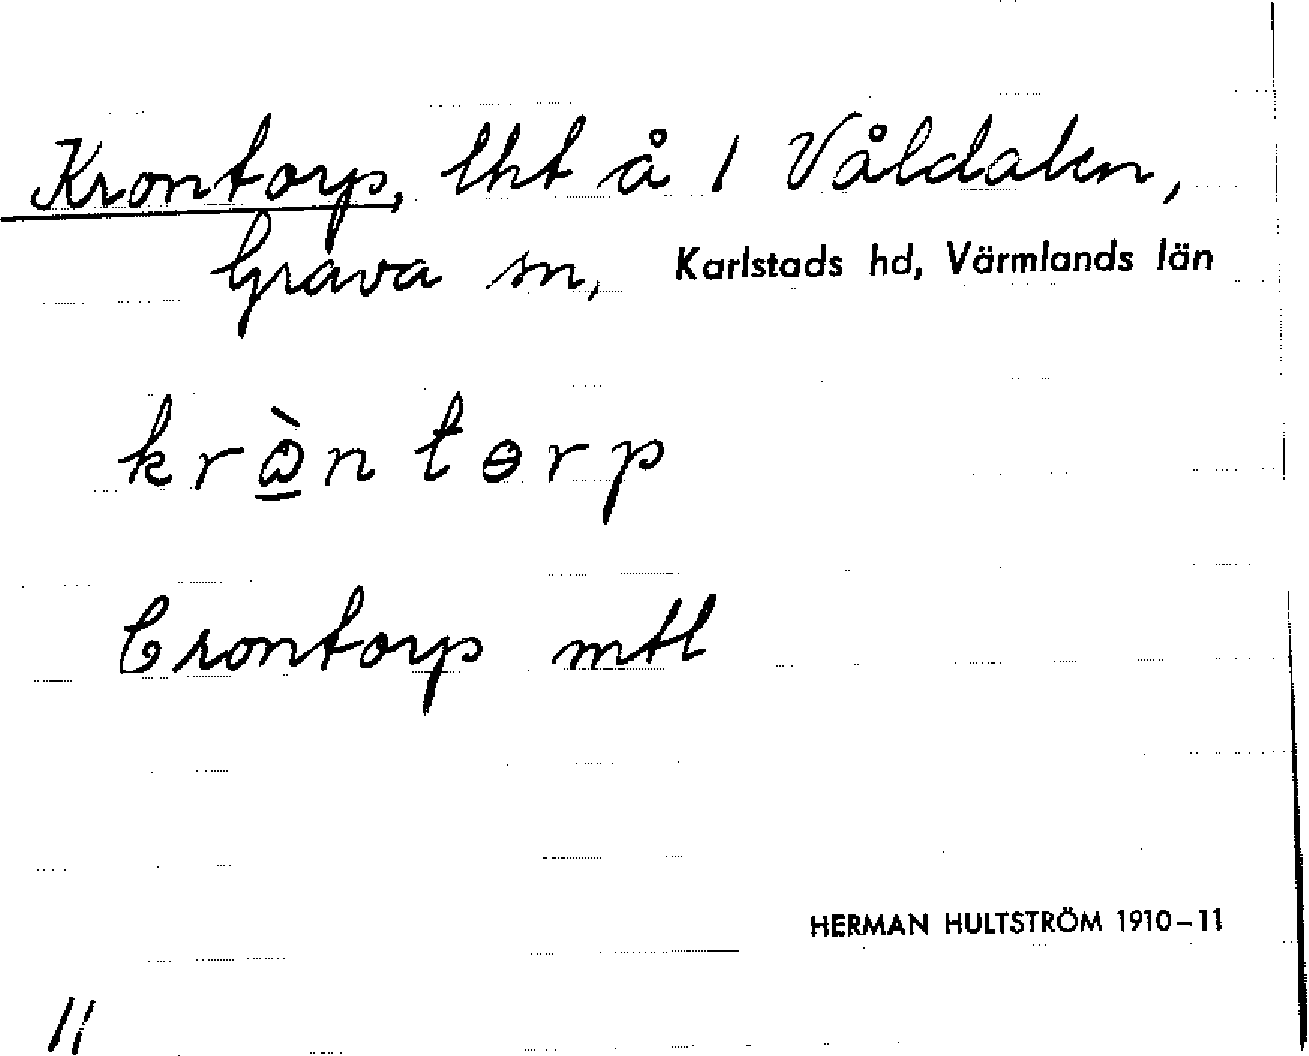 Krontorp, lht å 1 Våldalen,
Grava sn, Karlstads hd, Värmlands län
krὼ̲n tɵrp
Crontorp mtl
HERMAN HULTSTRÖM 1910–11
11